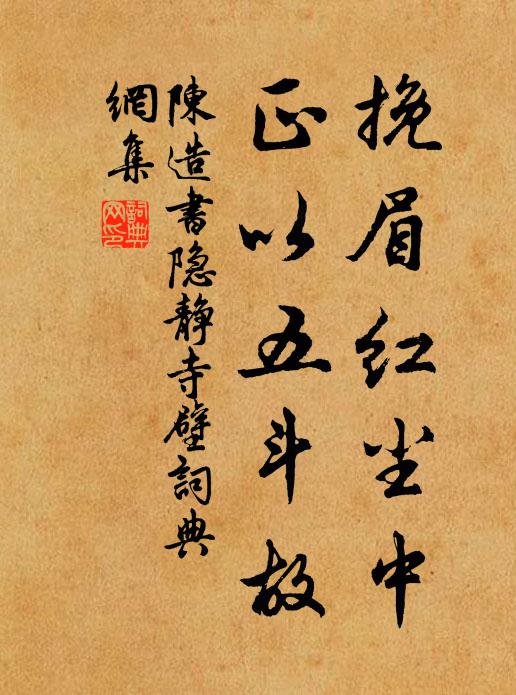 挽眉红尘中
正以五斗故
陳造書隐静寺壁詞典
網集
詞典
网印